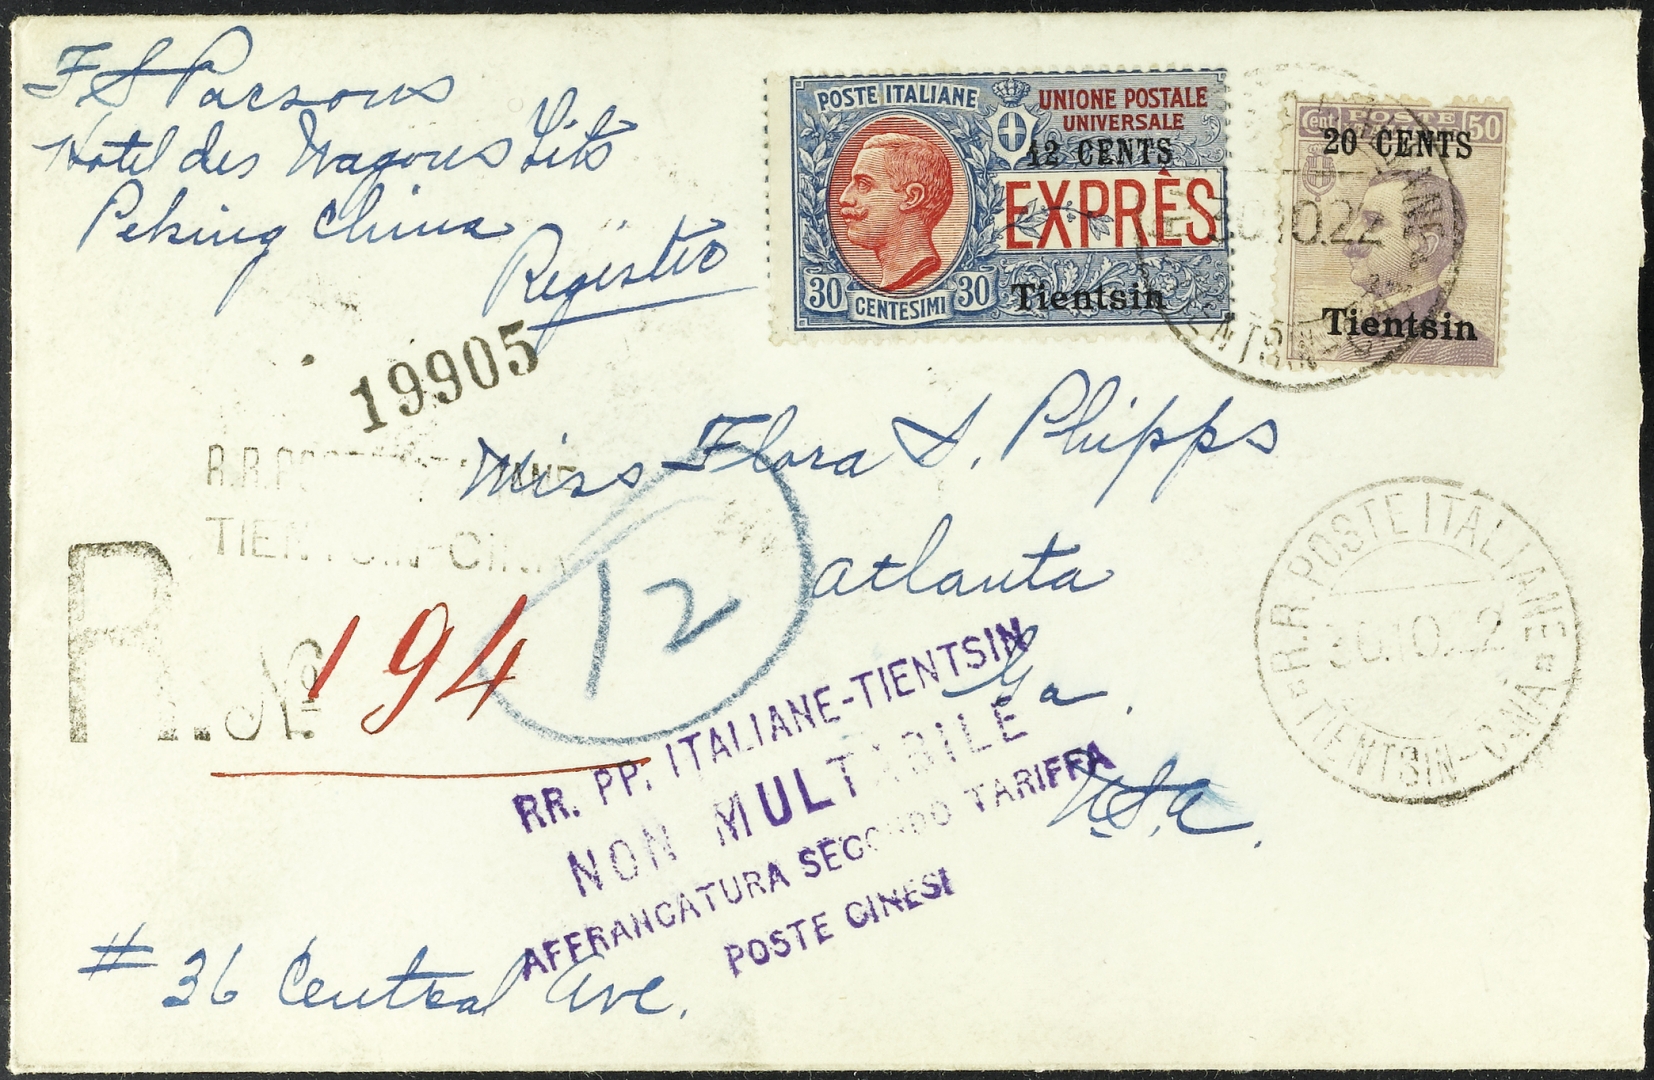 F S Parsons
Hotel des Wagons Lits
Peking China
Register
POSTE ITALIANE
UNIONE POSTALE
UNIVERSALE
12 CENTS
EXPRÈS
30 CENTESIMI 30
Tientsin
Cent POSTE 50
20 CENTS
Tientsin
30.10.22
19905
Miss Flora S. Phipps
Atlanta
Ga.
U.S.A.
R.R. POSTE ITALIANE
TIENTSIN-CINA
R. No 194
12
R.R. POSTE ITALIANE
30.10.22
TIENTSIN-CINA
RR. PP. ITALIANE-TIENTSIN
NON MULTABILE
AFFRANCATURA SECONDO TARIFFA
POSTE CINESI
# 36 Central Ave.